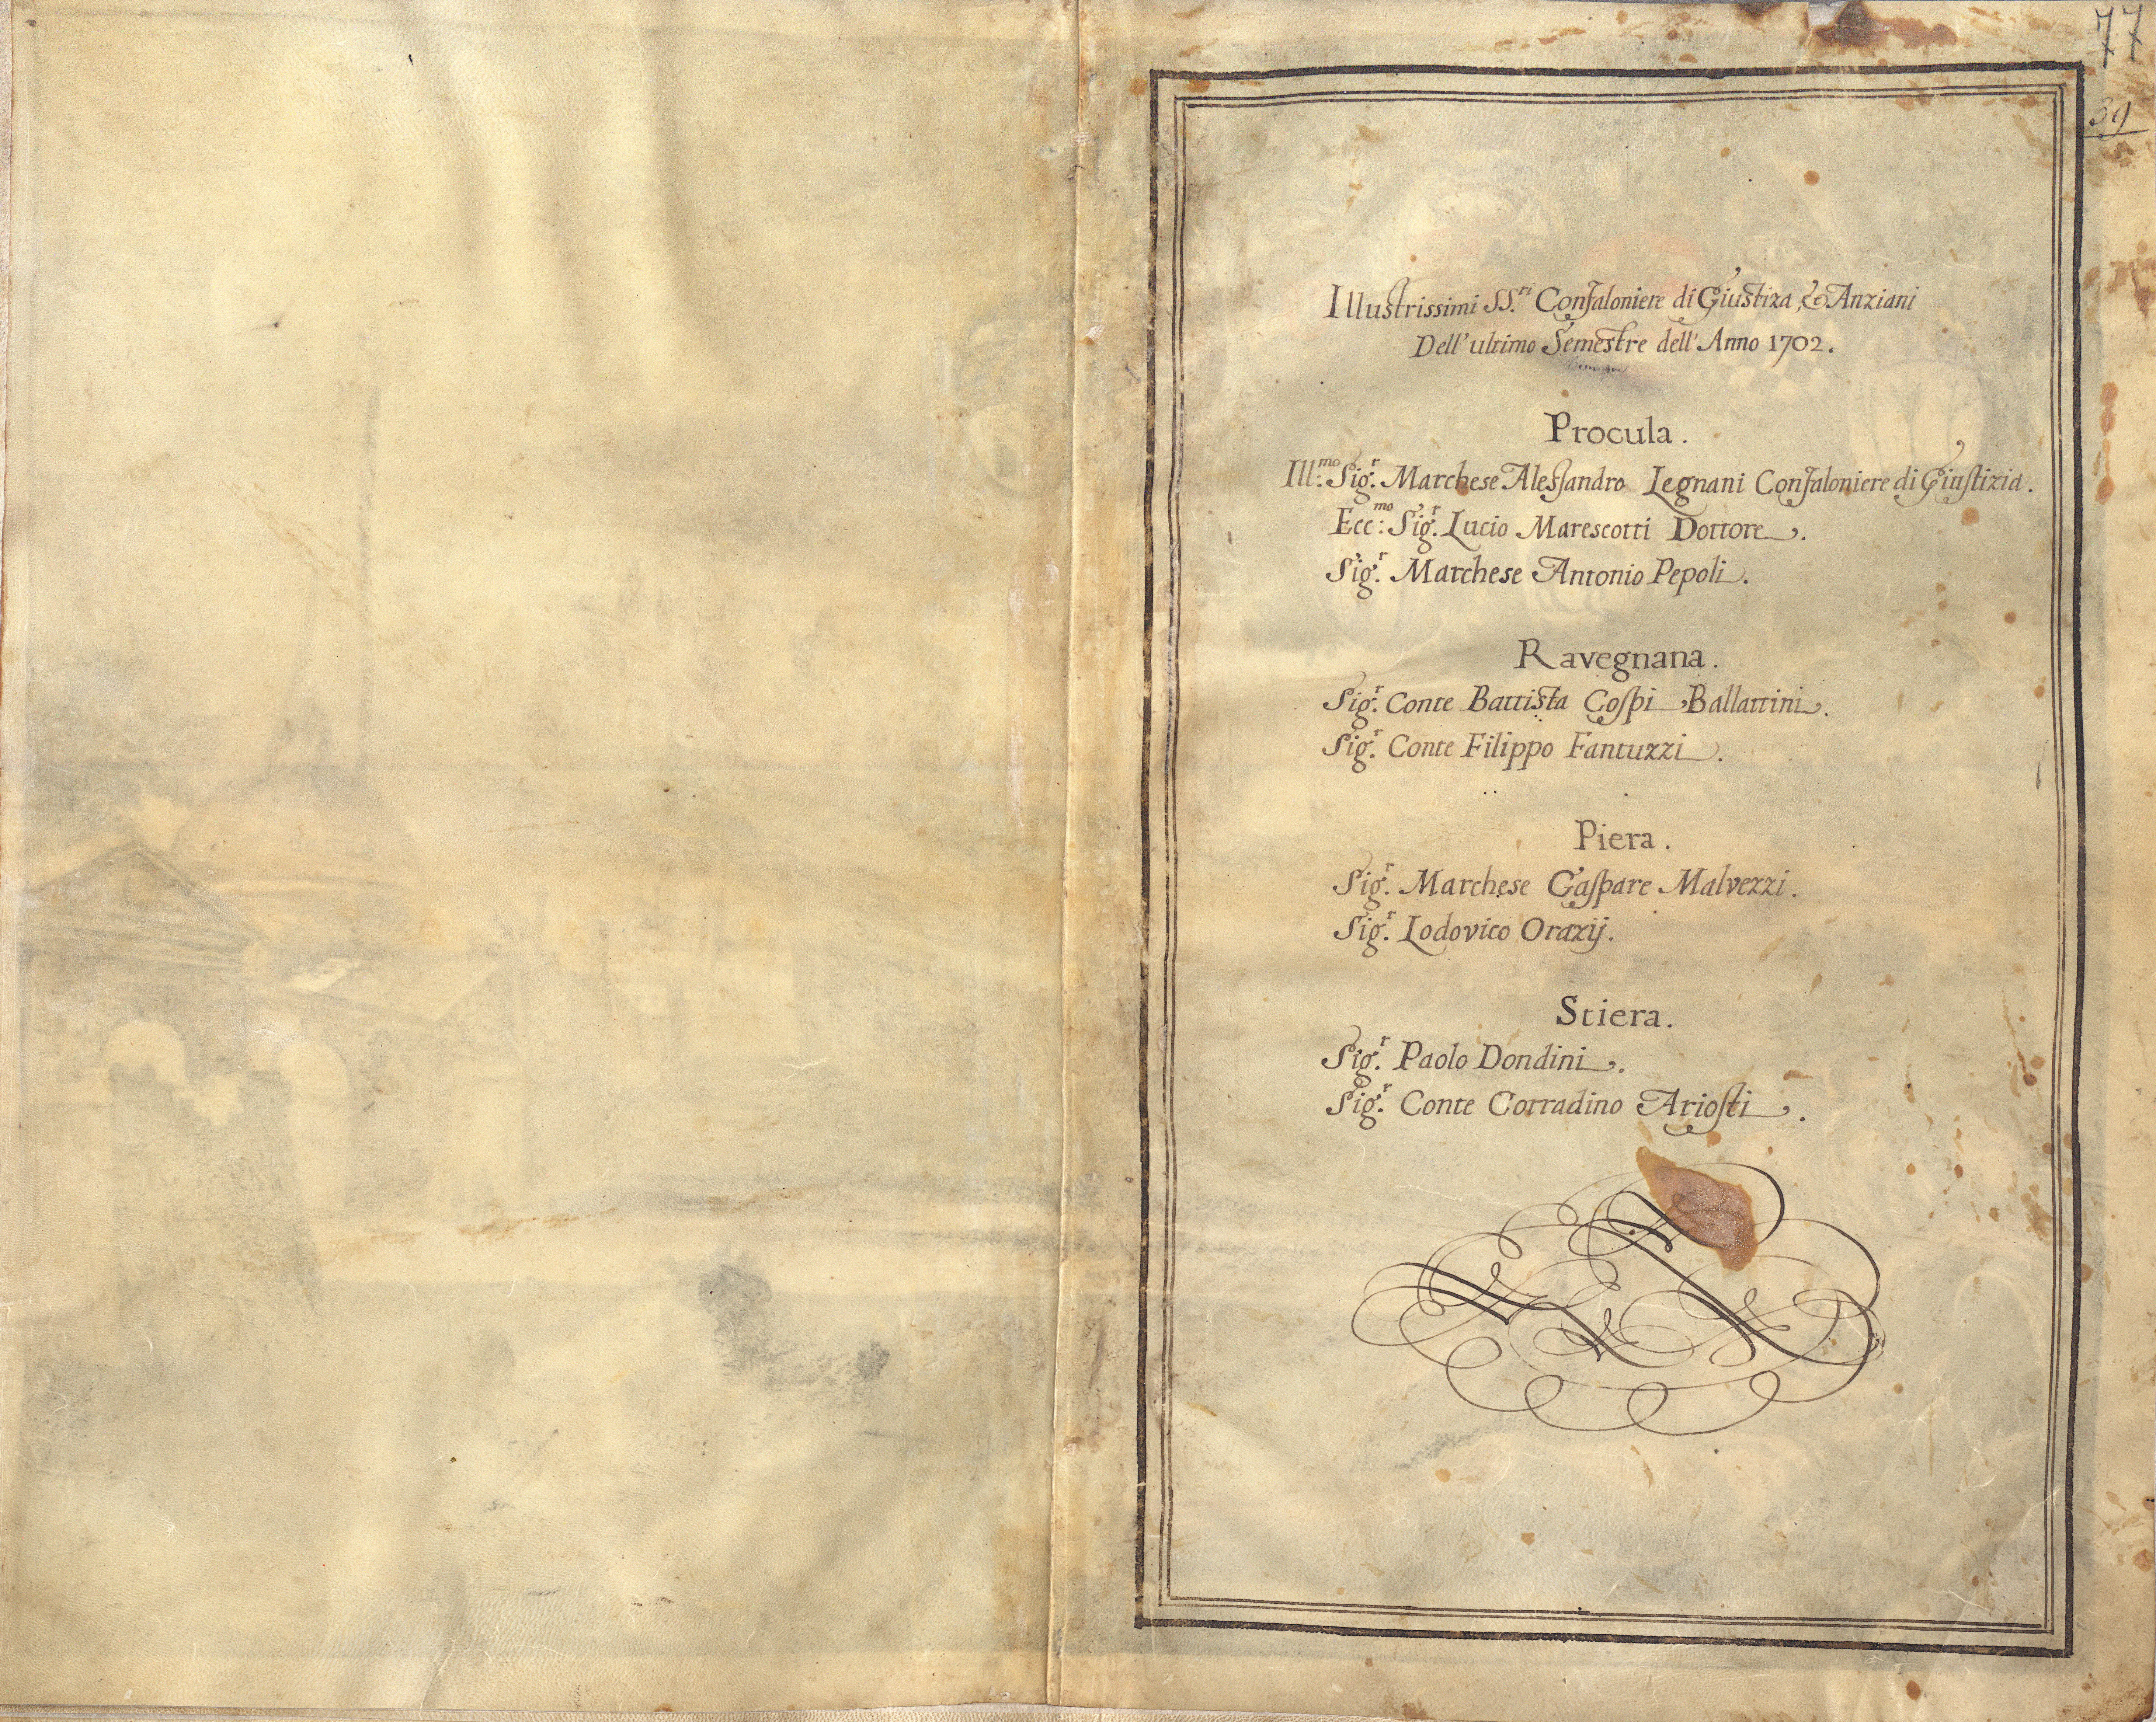 77
39
Illustrissimi SS.ri Confaloniere di Giustiza, & Anziani
Dell'ultimo Semestre dell'Anno 1702.
Procula.
Ill:mo Sig.r Marchese Alessandro Legnani Confaloniere di Giustizia.
Ecc:mo Sig.r Lucio Marescotti Dottore.
Sig.r Marchese Antonio Pepoli.
Ravegnana.
Sig.r Conte Battista Cospi Ballattini.
Sig.r Conte Filippo Fantuzzi.
Piera.
Sig.r Marchese Gaspare Malvezzi.
Sig.r Lodovico Orazij.
Stiera.
Sig.r Paolo Dondini.
Sig.r Conte Corradino Ariosti.